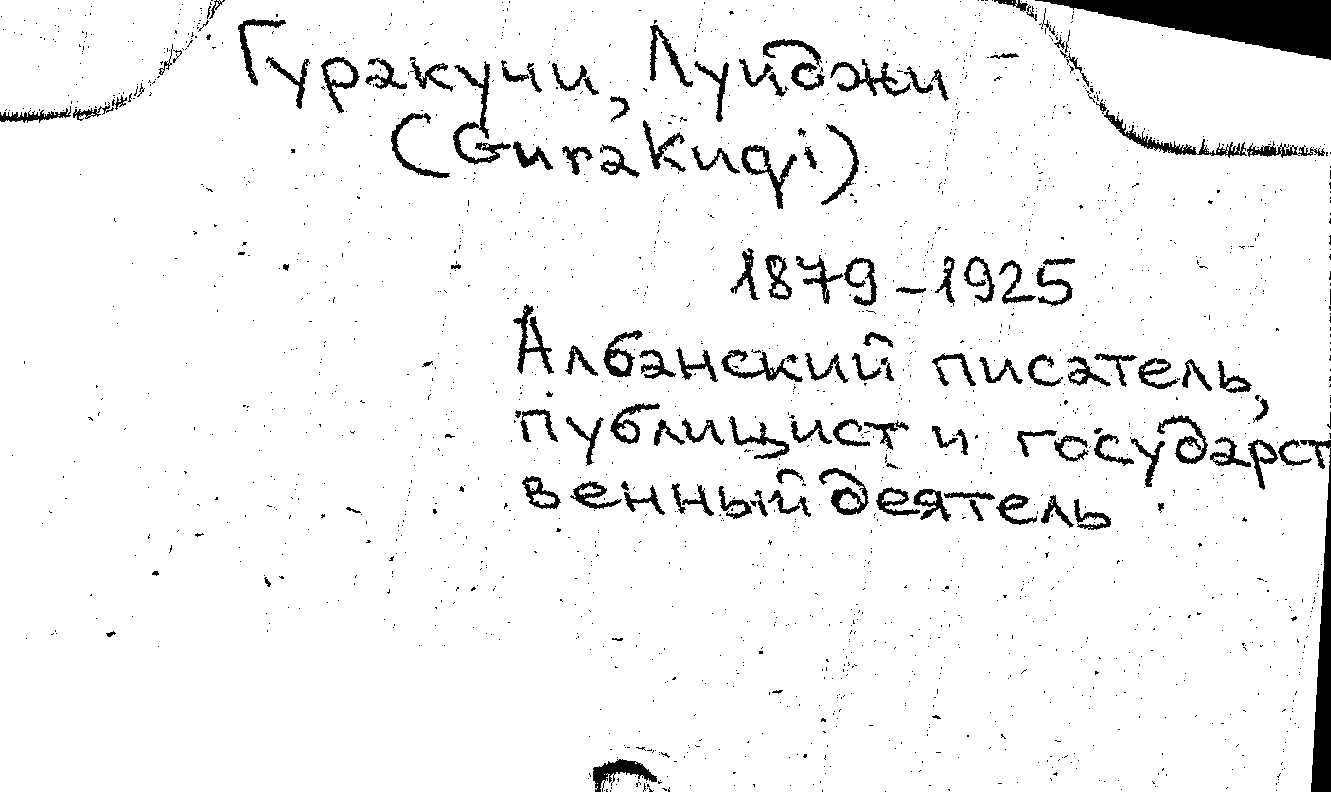 Гуракучи, Луиджи -
(Gurakuqi)
1879-1925
Албанский писатель,
публицист и государст
венный деятель